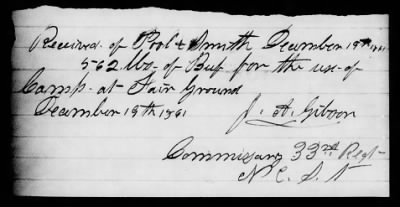 Received of Pool & Smith December 19th 1861
562 lbs. of Beef for the use of
Camp at Fair Ground
December 19th 1861
J. A. Gibson
Commissary 33rd Regt
N C S T